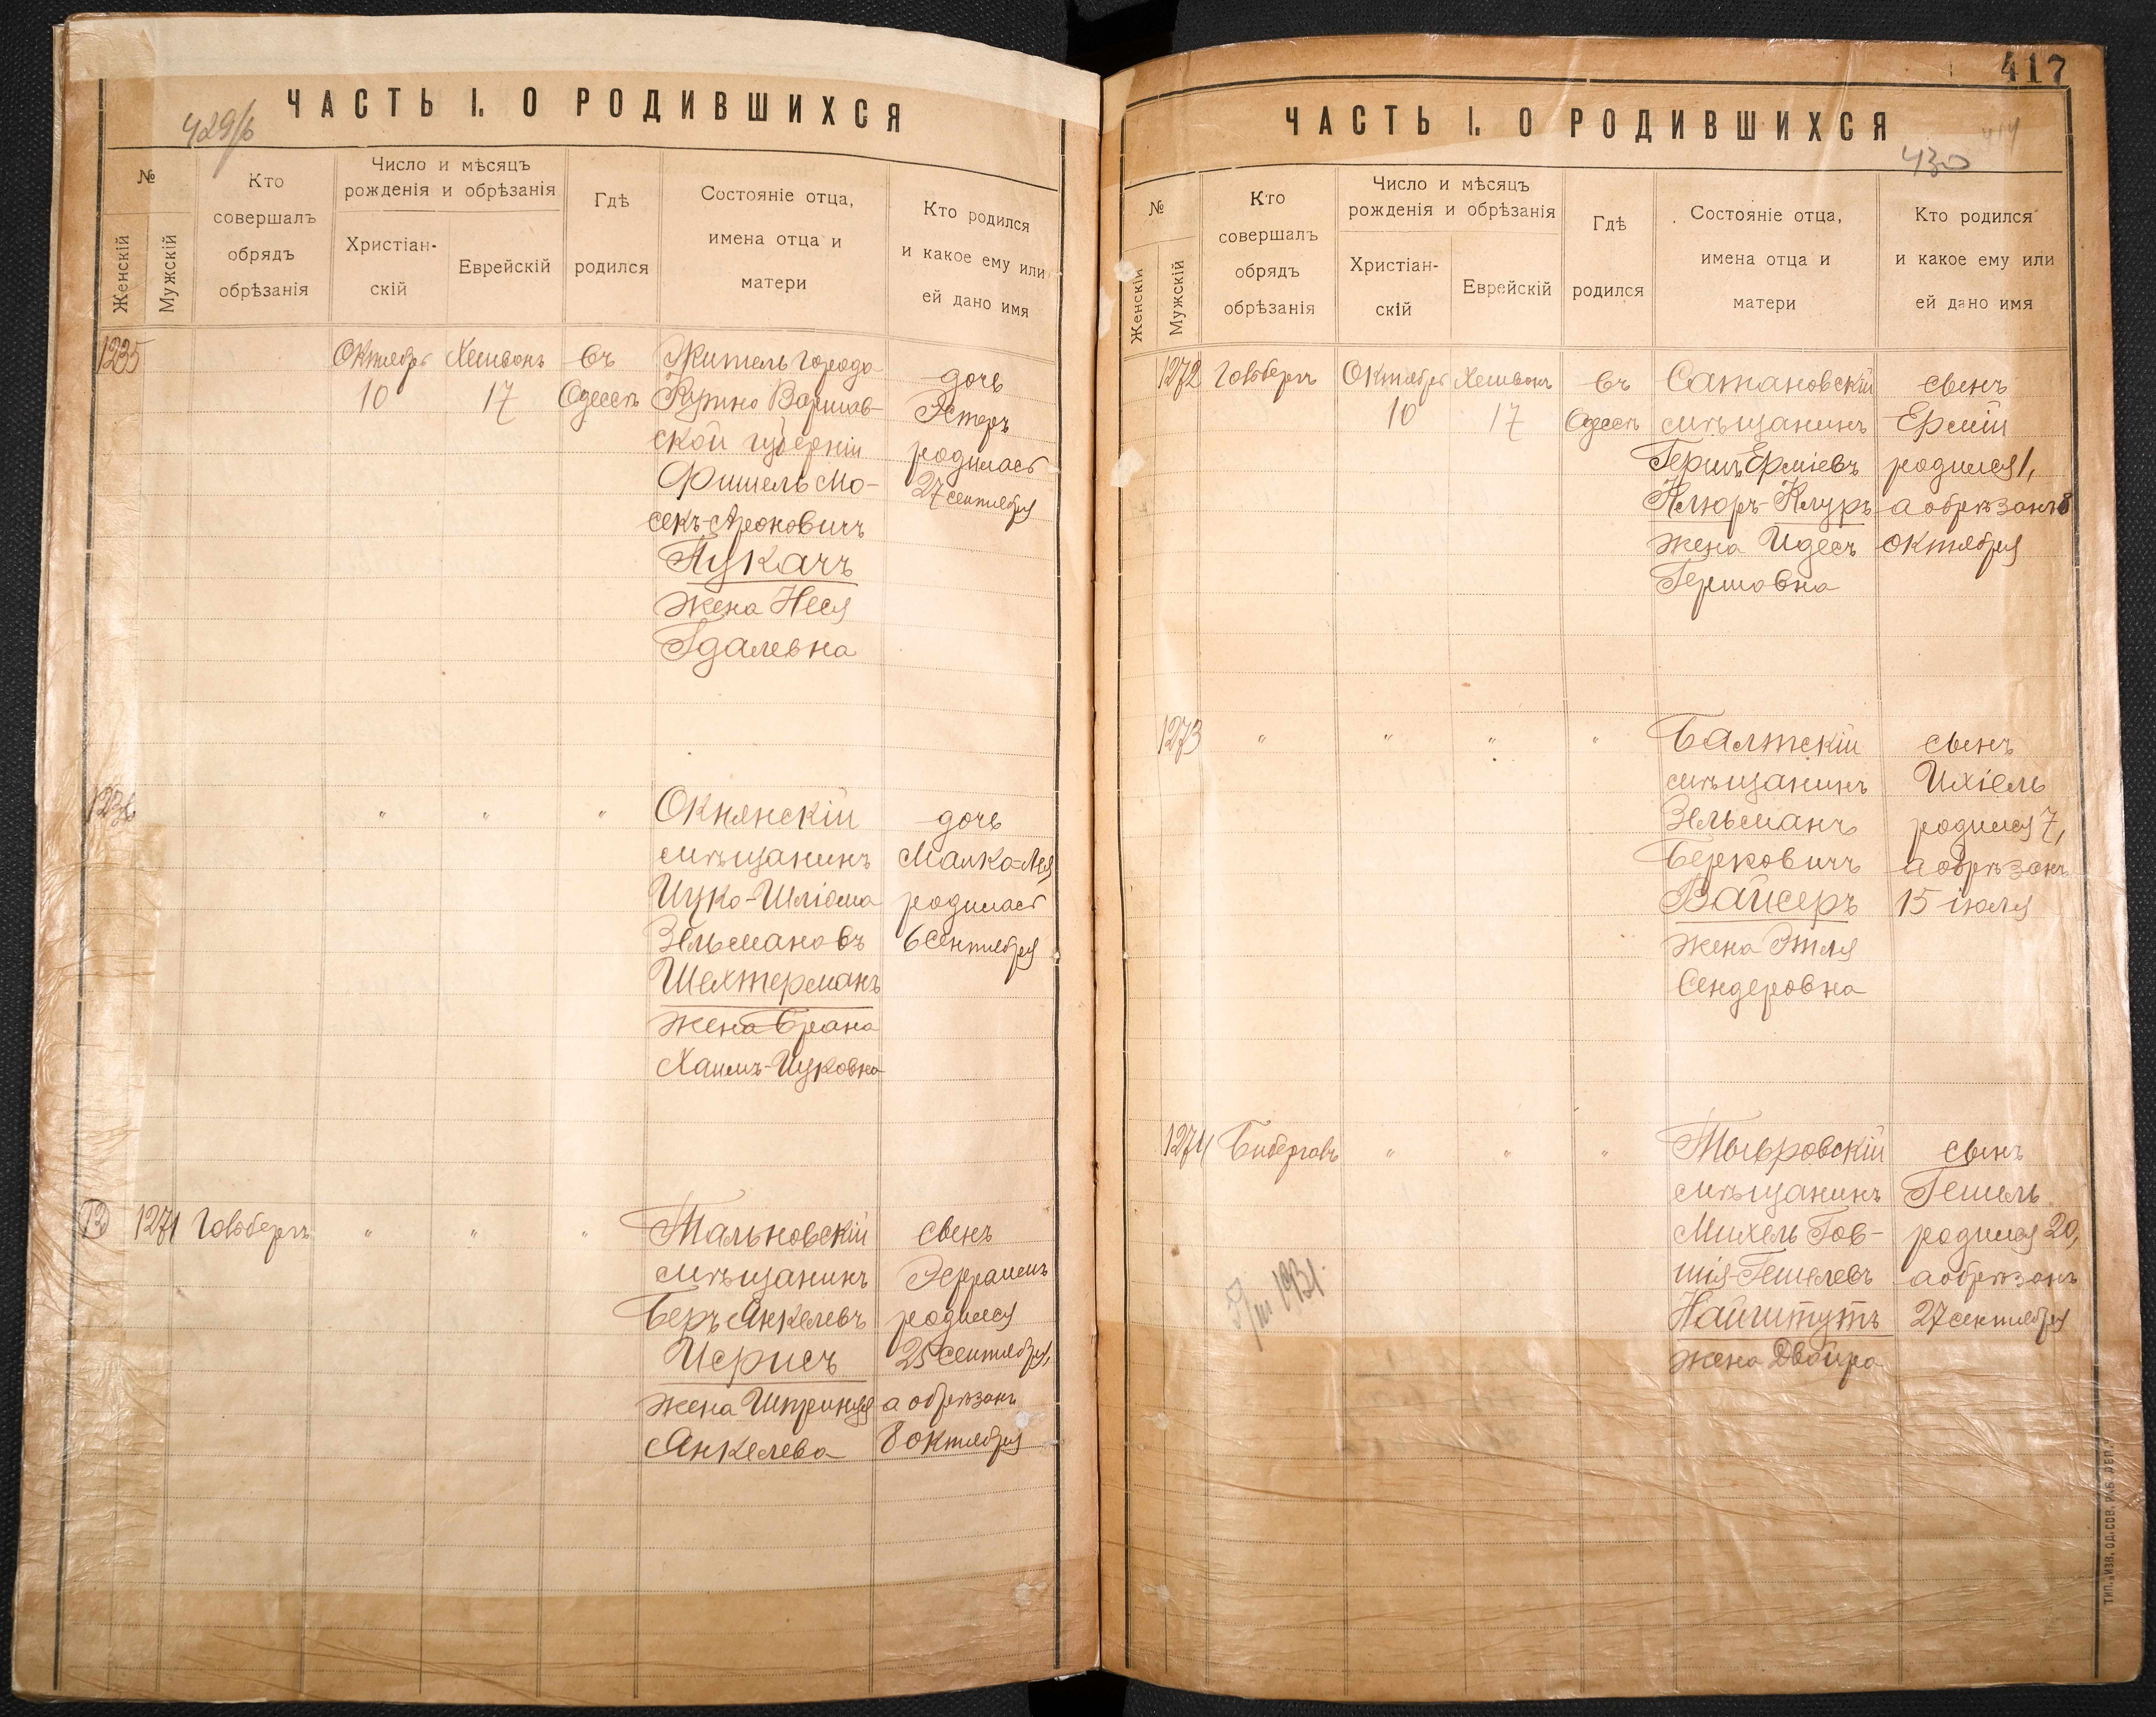 429/б
ЧАСТЬ I. О РОДИВШИХСЯ
№
Женскій
Мужскій
Кто
совершалъ
обрядъ
обрѣзанія
Число и мѣсяцъ
рожденія и обрѣзанія
Христіан-
скій
Еврейскій
Гдѣ
родился
Состояніе отца,
имена отца и
матери
Кто родился
и какое ему или
ей дано имя
1235
Октябрь
10
Хешванъ
17
въ
Одессѣ
Житель города
Варшав-
ской губерніи
Фишель Мо-
секъ-Ароновичъ
Лукачъ
жена Неся
Гдалевна
дочь
Эстеръ
родилась
27 сентября
1236
"
"
"
Окнянскій
мѣщанинъ
Ицко-Шліома
Зельмановъ
Шехтерманъ
жена Брана
Хаимъ-Ицковна
дочь
Малка-Лея
родилась
6 сентября
1271
Говбергъ
"
"
"
Тальновскій
мѣщанинъ
Беръ Янкелевъ
жена Шпринця
Янкелева
сынъ
Эфраимъ
родился
25 сентября,
а обрѣзанъ
8 октября
417
ЧАСТЬ I. О РОДИВШИХСЯ
414
430
№
Женскій
Мужскій
Кто
совершалъ
обрядъ
обрѣзанія
Число и мѣсяцъ
рожденія и обрѣзанія
Христіан-
скій
Еврейскій
Гдѣ
родился
Состояніе отца,
имена отца и
матери
Кто родился
и какое ему или
ей дано имя
1272
Говбергъ
Октябрь
10
Хешванъ
17
въ
Одессѣ
Сатановскій
мѣщанинъ
Гершъ Ерміевъ
Клюръ-Клуръ
жена Идесъ
Гершовна
сынъ
Ермій
родился 1,
а обрѣзанъ 8
октября
1273
"
"
"
"
Балтскій
мѣщанинъ
Зельманъ
Берковичъ
Вайсеръ
жена Этля
Сендеровна
сынъ
Ихіель
родился 7,
а обрѣзанъ
15 іюля
1274
"
"
"
Тывровскій
мѣщанинъ
Михель Гов-
шія-Гешелевъ
Найгштутъ
жена Двойра
сынъ
Гешель
родился 20,
а обрѣзанъ
27 сентября
5/III 1931.
ТИП. „ИЗВ. ОД. СОВ. Р. и Б. ДЕП.“